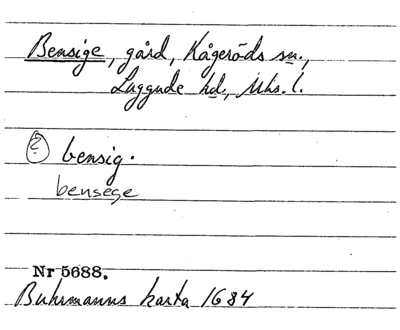 Bensige, gård, Kågeröds sn.,
Luggude hd., Mhs. l.
? bensig.
bensege
Nr 5688.
Buhrmanns karta 1684